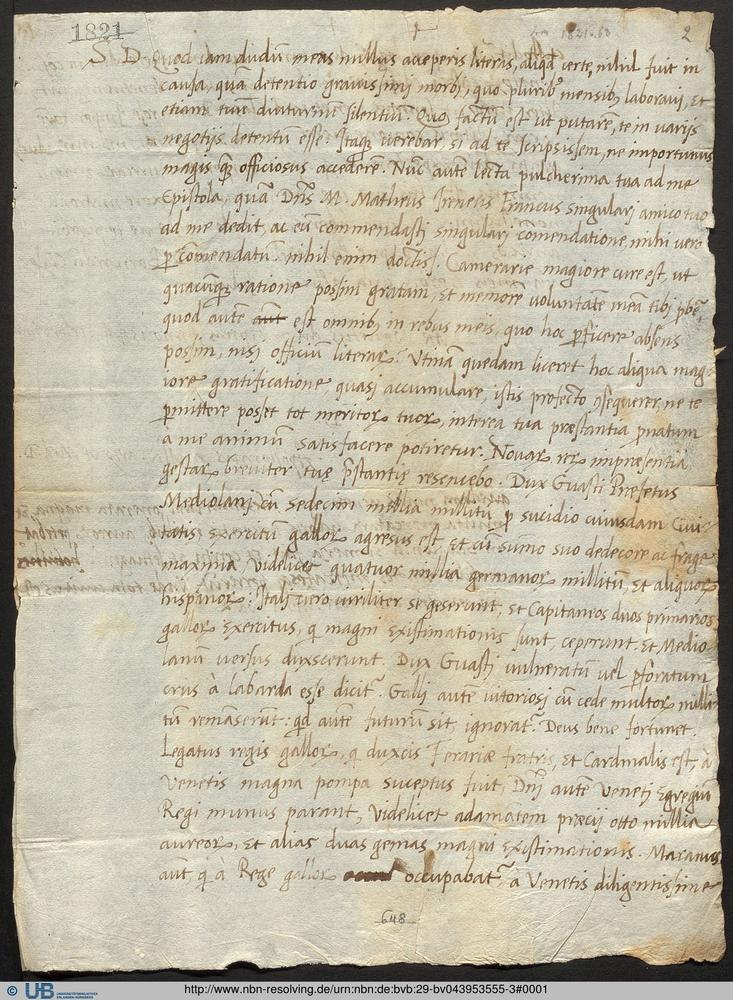 1821
2
S. D. Quod iam dudũ meas nullas acceperis literis, aliqd certe, nihil fuit in
causa, quã detentio gravissimi morbi, quo pluribꝰ mensibꝫ laboravi, et
etiam tuũ diuturnũ silentiũ. Quo factũ est ut putarẽ, te in varijs
negotijs detentũ esse. Itaqꝫ verebar, si ad te scripsissem, ne importunus
magis qꝫ officiosus accederẽ. Nũc autẽ lecta pulcherima tua ad me
Epistola, quã Dns M. Matheus Ireneus Francus singularj amico tuo
ad me dedit, ac eũ commendastj singularj cõmendatione, mihi vero
ꝑ cõmendatũ. nihil enim doctiss. Camerarie magiore cure est, ut
quacũqꝫ ratione possim gratam, et memorẽ voluntatẽ meã tibj ꝓbẽ,
quod autẽ aut est omnibꝫ in rebus meis, quo hoc ꝑficere absens
possim, nisj officiũ literaꝝ. Utinã quedam liceret hoc aliqua mag-
iore gratificatione quasj accumulare, istis profecto ꝯsequerer, ne te
ꝑmittere posset tot meritoꝝ tuoꝝ, interea tua præstantia pnatum
a me animũ satisfacere potiretur. Novaꝝ reꝝ impræsentia
gestaꝝ breviter tuę p̃stantię rescribebo. Dux Guasti Prefetus
Mediolanj cũ sedecim millia millitũ ꝑ sucidio cuiusdam Civi-
tatis exercitũ galloꝝ agresus est, et cũ sumo suo dedecore ac frage
maxima videlicet quatuor millia germanoꝝ millitũ, et aliquoꝝ
hispanoꝝ: Italj vero viriliter se geserunt, et Capitaneos duos primarios
galloꝝ Exercitus, q magni existimationis sunt, ceperunt et Medio-
lanũ versus duxscerunt. Dux Guastj vulneratũ vel ꝑforatum
crus à labarda esse dicitꝛ. Gallj autẽ vitoriosj cũ cede multoꝝ milli-
tũ remãserũt: qd autẽ futurũ sit, ignoratꝛ. Deus bene fortunet.
Legatus regis galloꝝ, q duxcis Ferariæ fratris, et Cardinalis est, à
Venetis magna pompa suceptus fuit, Dnj autẽ Venetj Egregiũ
Regi munus parant, videlicet adamatem precij otto millia
aureoꝝ, et alias duas gemas magni existimationis. Maranus
aũt, q à Rege galloꝝ occupabatꝛ, à Venetis diligentissime
648
© UB UNIVERSITÄTSBIBLIOTHEK ERLANGEN-NÜRNBERG http://www.nbn-resolving.de/urn:nbn:de:bvb:29-bv043953555-3#0001